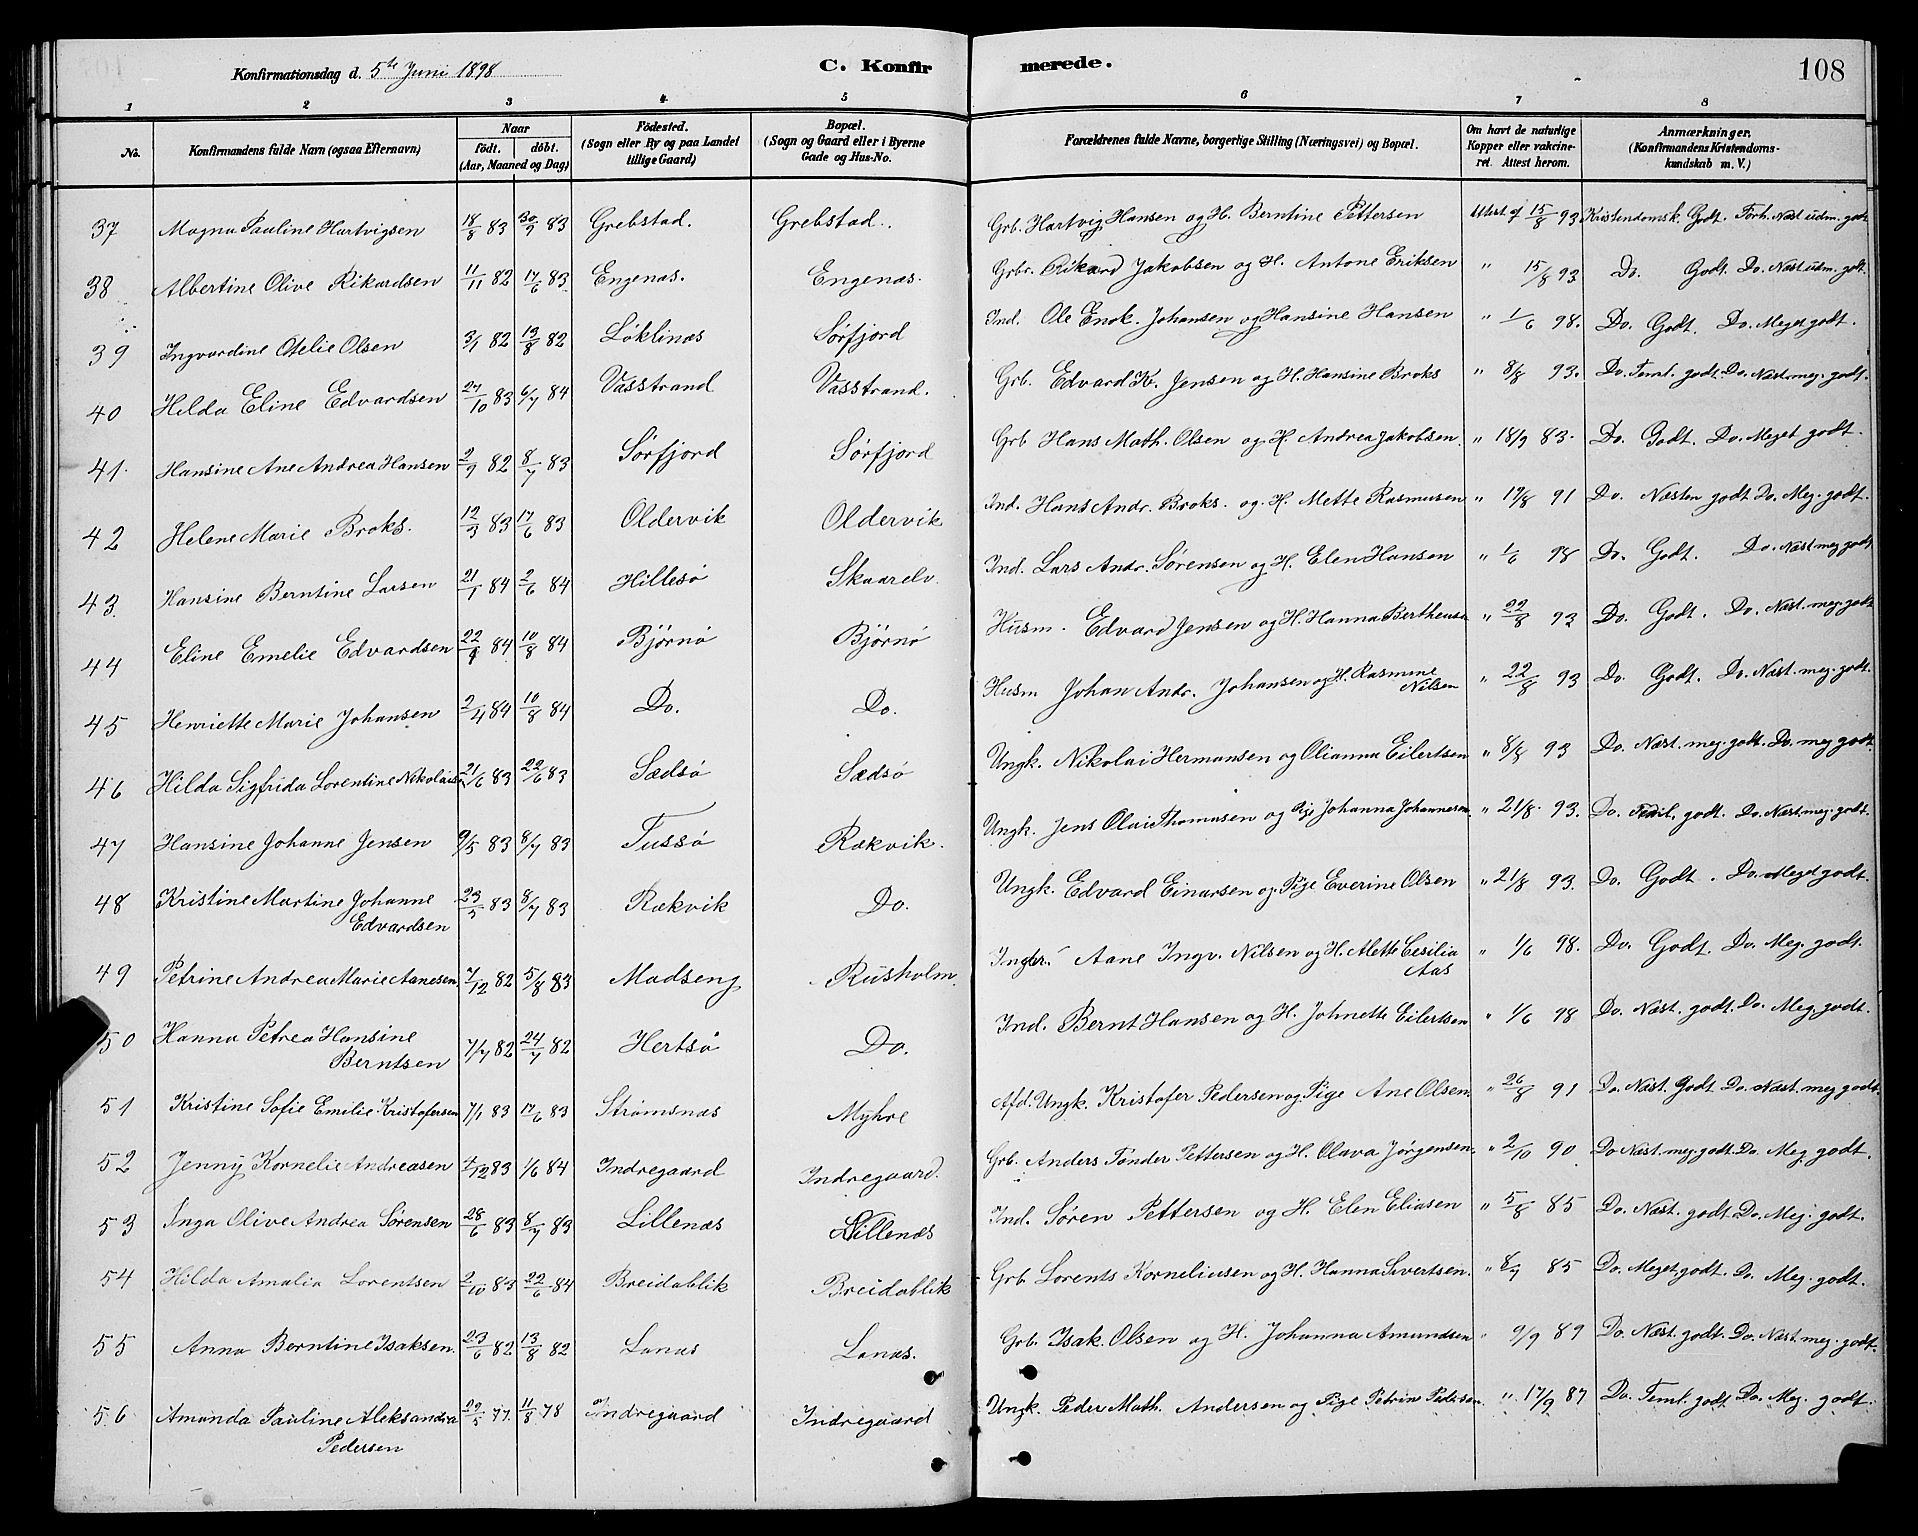 Konfirmationsdag d. 5te Juni 1898 C. Konfirmerede. 108
1 2 3 4 5 6 7 8
No. Konfirmandens fulde Navn (ogsaa Efternavn) Naar födt. döbt. (Aar, Maaned og Dag) Födested. (Sogn eller By og paa Landet tillige Gaard) Bopæl. (Sogn og Gaard eller i Byerne Gade og Hus-No. Forældrenes fulde Navne, borgerlige Stilling (Næringsvei) og Bopæl. Om havt de naturlige Kopper eller vakcineret. Attest herom. Anmærkninger. (Konfirmandens Kristendomskundskab m. V.)
37 Magna Pauline Hartvigsen 18/8 83 30/9 83 Grebstad. Grebstad. Grb. Hartvig Hansen og H. Berntine Pettersen Attest af 15/8 93 Kristendomsk. Godt. Forh. Næst udm. godt
38 Albertine Olive Rikardsen 11/11 82 17/6 83 Engenæs. Engenæs. Grbr. Rikard Jakobsen og H. Antone Eriksen " 15/8 93 Do. Godt. Do. Næst udm. godt.
39 Ingvardine Otelie Olsen 3/7 82 13/8 82 Löklinæs Sørfjord Ind. Ole Enok. Johansen og Hansine Hansen " 1/6 98. Do. Godt. Do. Meget godt.
40 Hilda Eline Edvardsen 27/10 83 6/7 84 Vasstrand Vasstrand. Grb. Edvard K. Jensen og H. Hansine Broks " 8/8 93. Do. Teml. godt. Do. Næst. meg. godt.
41. Hansine Ane Andrea Hansen 2/9 82 8/7 83 Sørfjord Sørfjord Grb Hans Math. Olsen og H. Andrea Jakobsen. " 18/9 83. Do. Godt. Do. Meget godt.
42 Helene Marie Broks. 12/3 83 17/6 83 Oldervik Oldervik Ind. Hans Andr. Broks. og. H. Mette Rasmusen " 19/8 91 Do. Næsten godt Do. Meg. godt.
43. Hansine Berntine Larsen 21/1 84 2/6 84 Hillesø Skaarelv. Ind. Lars Andr. Sørensen og H. Elen Hansen " 1/6 98 Do. Godt. Do. Næst meg. godt
44 Eline Emelie Edvardsen 22/4 84 10/8 84 Bjørnø Bjørnø Husm. Edvard Jensen og H. Hanna Bertheusen " 22/8 93 Do. Godt. Do. Næst. meg. godt
45 Henriette Marie Johansen 2/4 84 10/8 84 Do. Do. Husm Johan Andr. Johansen og H. Rasmine Nilsen " 22/8 93 Do. Godt. Do. Næst. meg. godt.
46 Hilda Sigfrida Lorentine Nikolais 21/6 83 22/6 83 Sædsø Sædsø Ungk. Nikolai Hermansen og Olianna Eilertsen " 8/8 93 Do. Næst. meg. godt. Do. meg godt.
47 Hansine Johanne Jensen 9/5 83 8/7 83 Tussø Rækvik. Ungk. Jens Olai Thomasen og Pige Johanna Johannesen. " 21/8. 93. Do. Teml. godt. Do. Næst. meg. godt.
48 Kristine Martine Johanne Edvardsen 23/5 83 8/7 83 Rækvik Do. Ungk. Edvard Einarsen og Pige Everine Olsen " 21/8 93. Do. Godt. Do. Meget godt.
49 Petrine Andrea Marie Aanesen 7/12 82 5/8 83 Madseng Rusholm. Aane Ingv. Nilsen og H. Alette Cesilia Aas " 1/6 98. Do. Godt. Do. Meg. godt.
50 Hanna Petrea Hansine Berntsen 7/7 82 24/7 82 Hertsø Do. Ind. Bernt Hansen og H. Johnette Eilertsen " 1/6 98 Do. Næst. godt. Do. Meg. godt.
51 Kristine Sofie Emilie Kristofersen 7/1 83 17/6 83 Strømsnæs Myhre Afd. Ungk. Kristofer Pedersen og Pige Ane Olsen. " 26/8 91 Do. Næst. Godt Do. Næst. meg godt.
52 Jenny Kornelie Andreasen 4/12 83 1/6 84 Indregaard Indregaard. Grb. Anders Tønder Pettersen og H. Olava Jørgensen. " 2/10 90 Do Næst. meg. godt. Do. Meg. godt.
53 Inga Olive Andrea Sørensen 28/6 83 8/7 83 Lillenæs Lillenæs Ind. Søren Pettersen og H. Elen Eliasen " 5/8 85 Do. Næst. godt. Do. Meg. godt.
54 Hilda Amalia Lorentsen 2/10 83 22/6 84 Breidablik Breidablik Grb Lorents Korneliusen og H. Hanna Sivertsen. " 8/7 85 Do. Meget godt. Do. Meg. godt.
55 Anna Berntine Isaksen. 23/6 82 13/8 82 Lanæs Lanæs. Grb. Isak. Olsen og H. Johanna Amundsen " 9/9 89 Do. Næst. godt. Do. Næst. meg. godt.
56 Amanda Pauline Aleksandra Pedersen 29/5 77. 11/8 78 Indregaard Indregaard Ungk. Peder Math. Andersen og Pige Petrine Pedersen. " 17/9 87 Do. Teml. godt Do. Meg. godt.